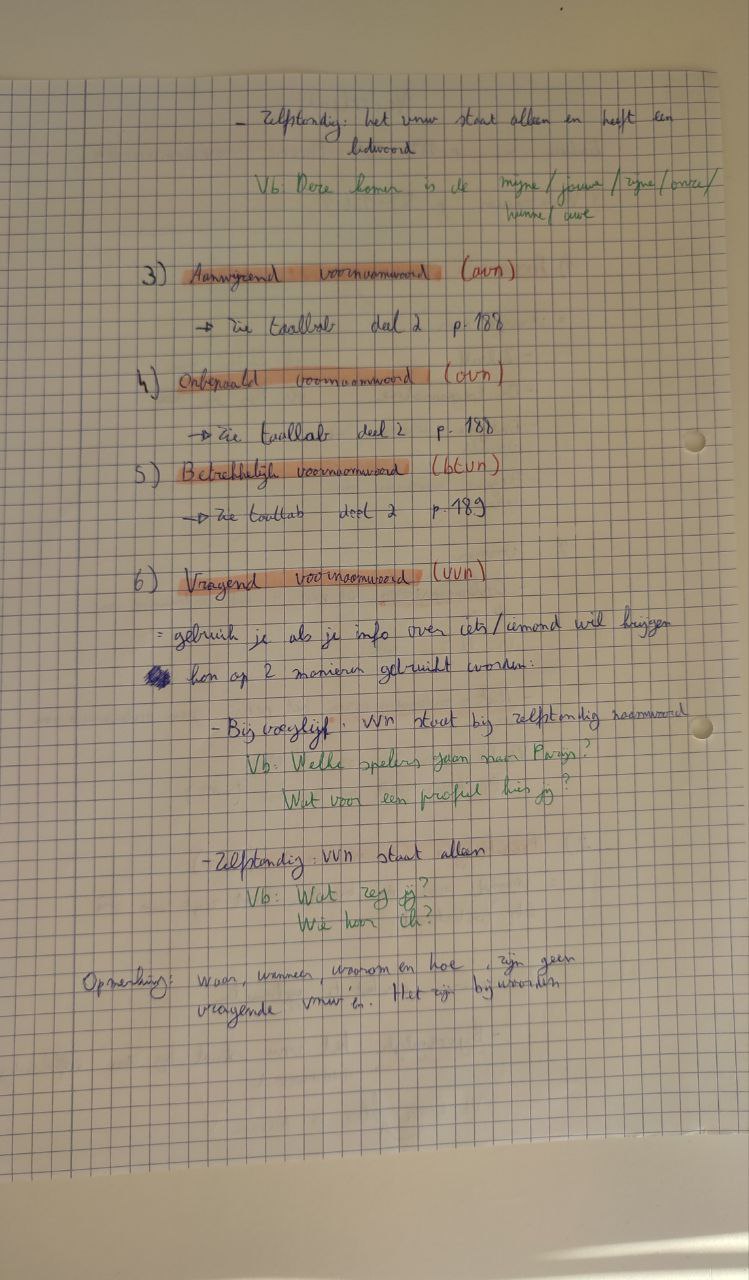 - Zelfstandig: het vnw staat alleen en heeft een
lidwoord
Vb: Deze kamer is de mijne/ jouwe / zijne / onze/
hunne/ uwe
3) Aanwijzend voornaamwoord (avn)
→ Zie taallab deel 2 p. 188
4) Onbepaald voornaamwoord (ovn)
→ Zie taallab deel 2 p. 188
5) Betrekkelijk voornaamwoord (btvn)
→ Zie taallab deel 2 p. 189
6) Vragend voornaamwoord (vvn)
= gebruik je als je info over iets/iemand wil krijgen
kan op 2 manieren gebruikt worden:
- Bijvoeglijk: vvn staat bij zelfstandig naamwoord
Vb: Welke spelers gaan naar Parijs?
Wat voor een profiel kies jij?
- Zelfstandig: vvn staat alleen
Vb: Wat zeg jij?
Wie hoor ik?
Opmerking: waar, wanneer, waarom en hoe, zijn geen
vragende vnw'en. Het zijn bijwoorden